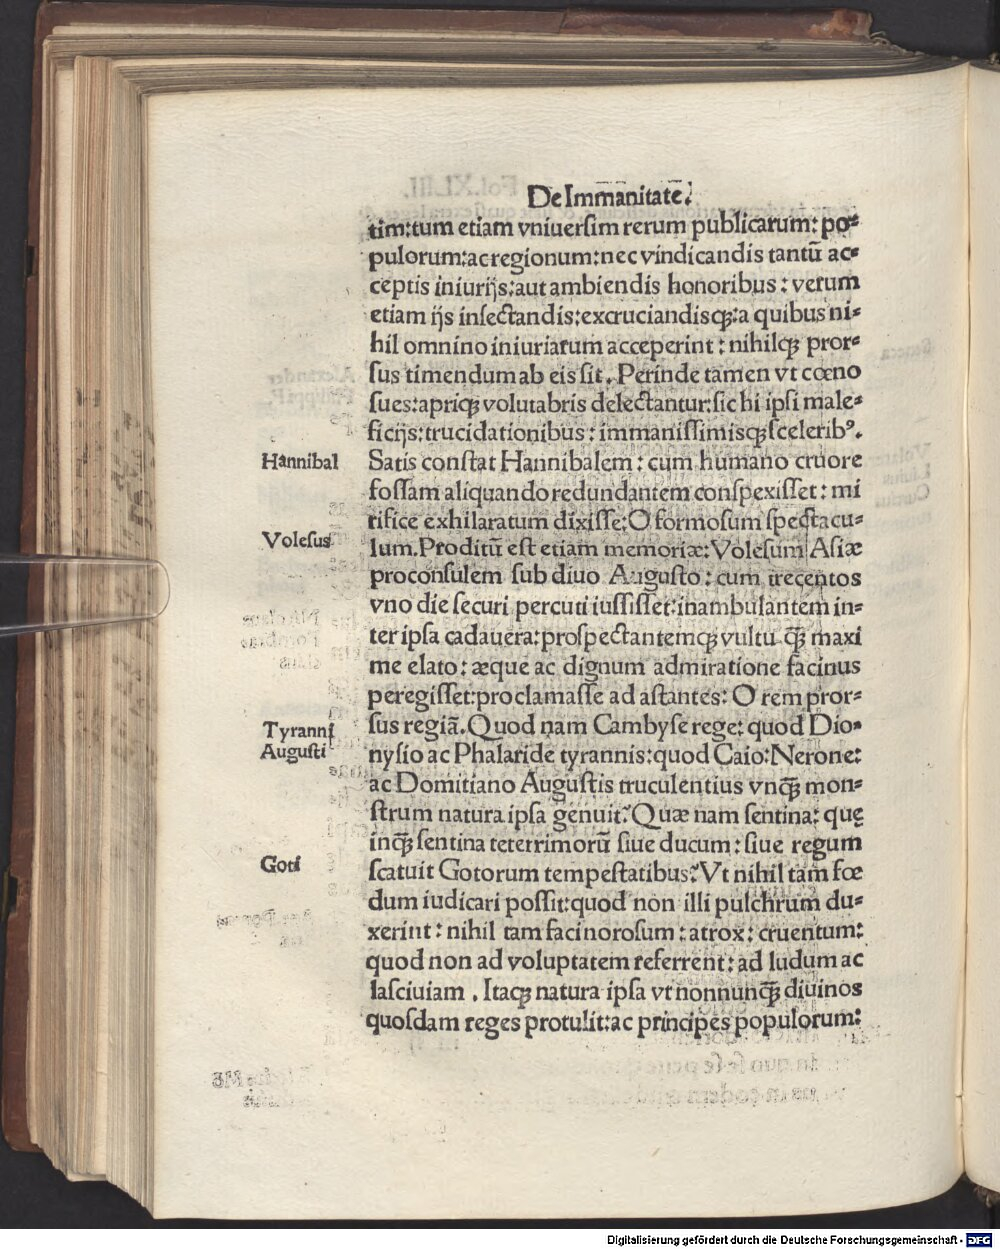 De Immanitate.
tim:tum etiam vniuersim rerum publicarum: po-
pulorum:ac regionum:nec vindicandis tantũ ac-
ceptis iniurijs:aut ambiendis honoribus: verum
etiam ijs insectandis:excruciandisqꝫ:a quibus ni-
hil omnino iniuriarum acceperint: nihilqꝫ pror-
sus timendum ab eis sit. Perinde tamen vt cœno
sues:apriqꝫ volutabris delectantur:sic hi ipsi male-
ficijs:trucidationibus: immanissimisqꝫ sceleribꝰ.
Hannibal
Satis constat Hannibalem: cum humano cruore
fossam aliquando redundantem conspexisset: mi
rifice exhilaratum dixisse:O formosum spectacu-
Volesus
lum.Proditũ est etiam memoriæ:Volesum Asiæ
proconsulem sub diuo Augusto: cum trecentos
vno die securi percuti iussisset:inambulantem in-
ter ipsa cadauera:prospectantemqꝫ vultu qꝫ̃ maxi
me elato: æque ac dignum admiratione facinus
peregisset:proclamasse ad astantes: O rem pror-
Tyranni
sus regiã.Quod nam Cambyse rege: quod Dio-
Augusti
nysio ac Phalaride tyrannis:quod Caio:Nerone:
ac Domitiano Augustis truculentius vnqꝫ̃ mon-
strum natura ipsa genuit? Quæ nam sentina: quę
inqꝫ̃ sentina teterrimorũ siue ducum: siue regum
Goti
scatuit Gotorum tempestatibus? Vt nihil tam fœ
dum iudicari possit:quod non illi pulchrum du-
xerint: nihil tam facinorosum: atrox: cruentum:
quod non ad voluptatem referrent: ad ludum ac
lasciuiam. Itaqꝫ natura ipsa vt nonnunqꝫ̃ diuinos
quosdam reges protulit:ac principes populorum:
Digitalisierung gefördert durch die Deutsche Forschungsgemeinschaft - DFG